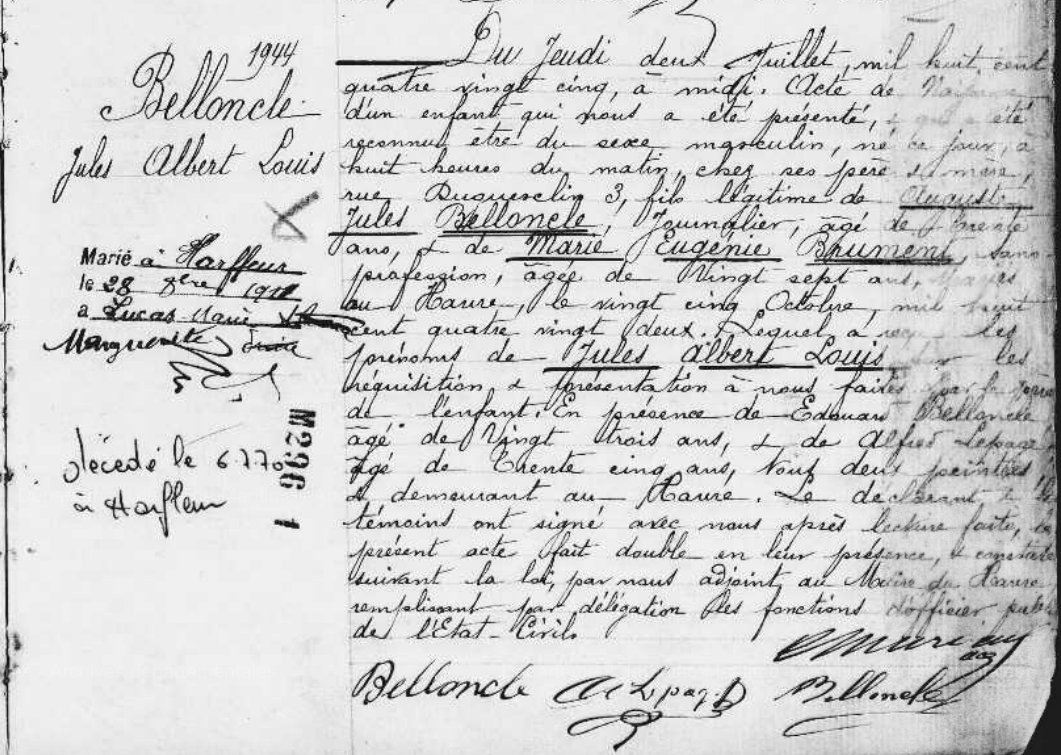 1944
Belloncle
Jules Albert Louis
Marié à Harfleur
le 28 8bre
a Lucas Marie
Marguerite
M296 1
décédé le 6.7.70
à Harfleur
Du Jeudi deux Juillet, mil huit cent
quatre vingt cinq, à midi. Acte de Naissance
d'un enfant qui nous a été présenté, & qui a été
reconnu être du sexe masculin, né ce jour, à
huit heures du matin, chez ses père & mère,
rue Duguesclin 3, fils légitime de Auguste
Jules Belloncle, Journalier, âgé de Trente
ans, & de Marie Eugénie Brument, sans
profession, âgée de Vingt sept ans, mariés
au Havre, le vingt cinq Octobre, mil huit
cent quatre vingt deux. Lequel a reçu les
prénoms de Jules Albert Louis sur les
réquisition & présentation à nous faites par le père
de l'enfant. En présence de Edouard Belloncle
âgé de Vingt trois ans, & de Alfred Lepage
âgé de Trente cinq ans, tous deux peintres
& demeurant au Havre. Le déclarant & les
témoins ont signé avec nous après lecture faite, le
présent acte fait double en leur présence, & constaté
suivant la loi, par nous adjoint au Maire du Havre
remplissant par délégation les fonctions d'officier public
de l'Etat-Civil.
Belloncle A Lepage Belloncle